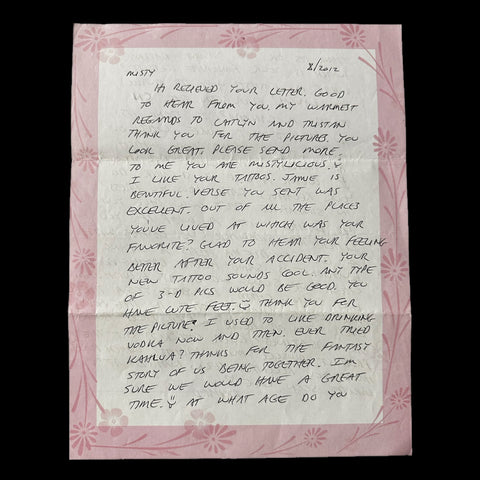 MISTY 8/2012
HI RECIEVED YOUR LETTER. GOOD
TO HEAR FROM YOU. MY WARMEST
REGARDS TO CAITLYN AND TRISTAN
THANK YOU FOR THE PICTURES. YOU
LOOK GREAT. PLEASE SEND MORE
TO ME YOU ARE MISTYLICIOUS.
I LIKE YOUR TATTOOS. JAMIE IS
BEAUTIFUL. VERSE YOU SENT WAS
EXCELLENT. OUT OF ALL THE PLACES
YOU'VE LIVED AT WHICH WAS YOUR
FAVORITE? GLAD TO HEAR YOUR FEELING
BETTER AFTER YOUR ACCIDENT. YOUR
NEW TATTOO SOUNDS COOL. ANY TYPE
OF 3-D PICS WOULD BE GOOD. YOU
HAVE CUTE FEET. THANK YOU FOR
THE PICTURE. I USED TO LIKE DRINKING
VODKA NOW AND THEN. EVER TRIED
KAHLUA? THANKS FOR THE FANTASY
STORY OF US BEING TOGETHER. I'M
SURE WE WOULD HAVE A GREAT
TIME. AT WHAT AGE DO YOU